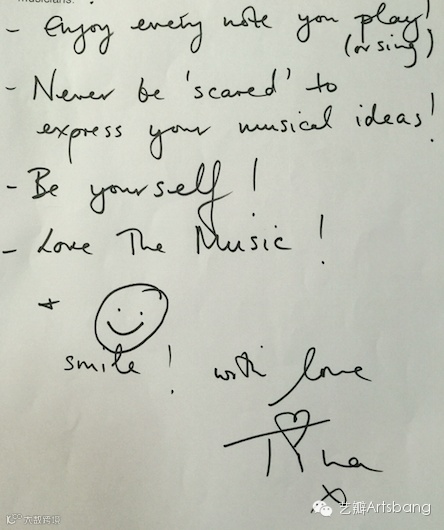 musicians.
- Enjoy every note you play!
(or sing)
- Never be 'scared' to
express your musical ideas!
- Be yourself!
- Love The Music!
+
smile! with love
Tina
x
艺瓣Artsbang
大数跨境